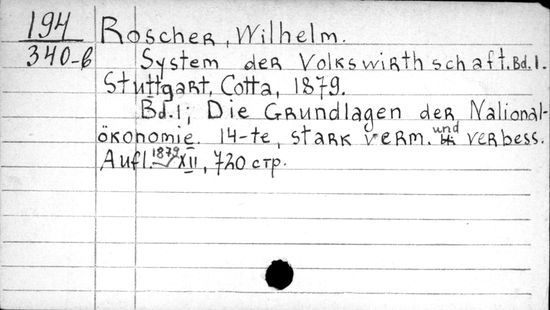 194 Roscher, Wilhelm.
340-б System der Volkswirthschaft. Bd. 1.
Stuttgart, Cotta, 1879.
Bd. 1; Die Grundlagen der National-
ökonomie. 14-te, stark verm. und verbess.
Aufl. 1879 XII, 720 стр.